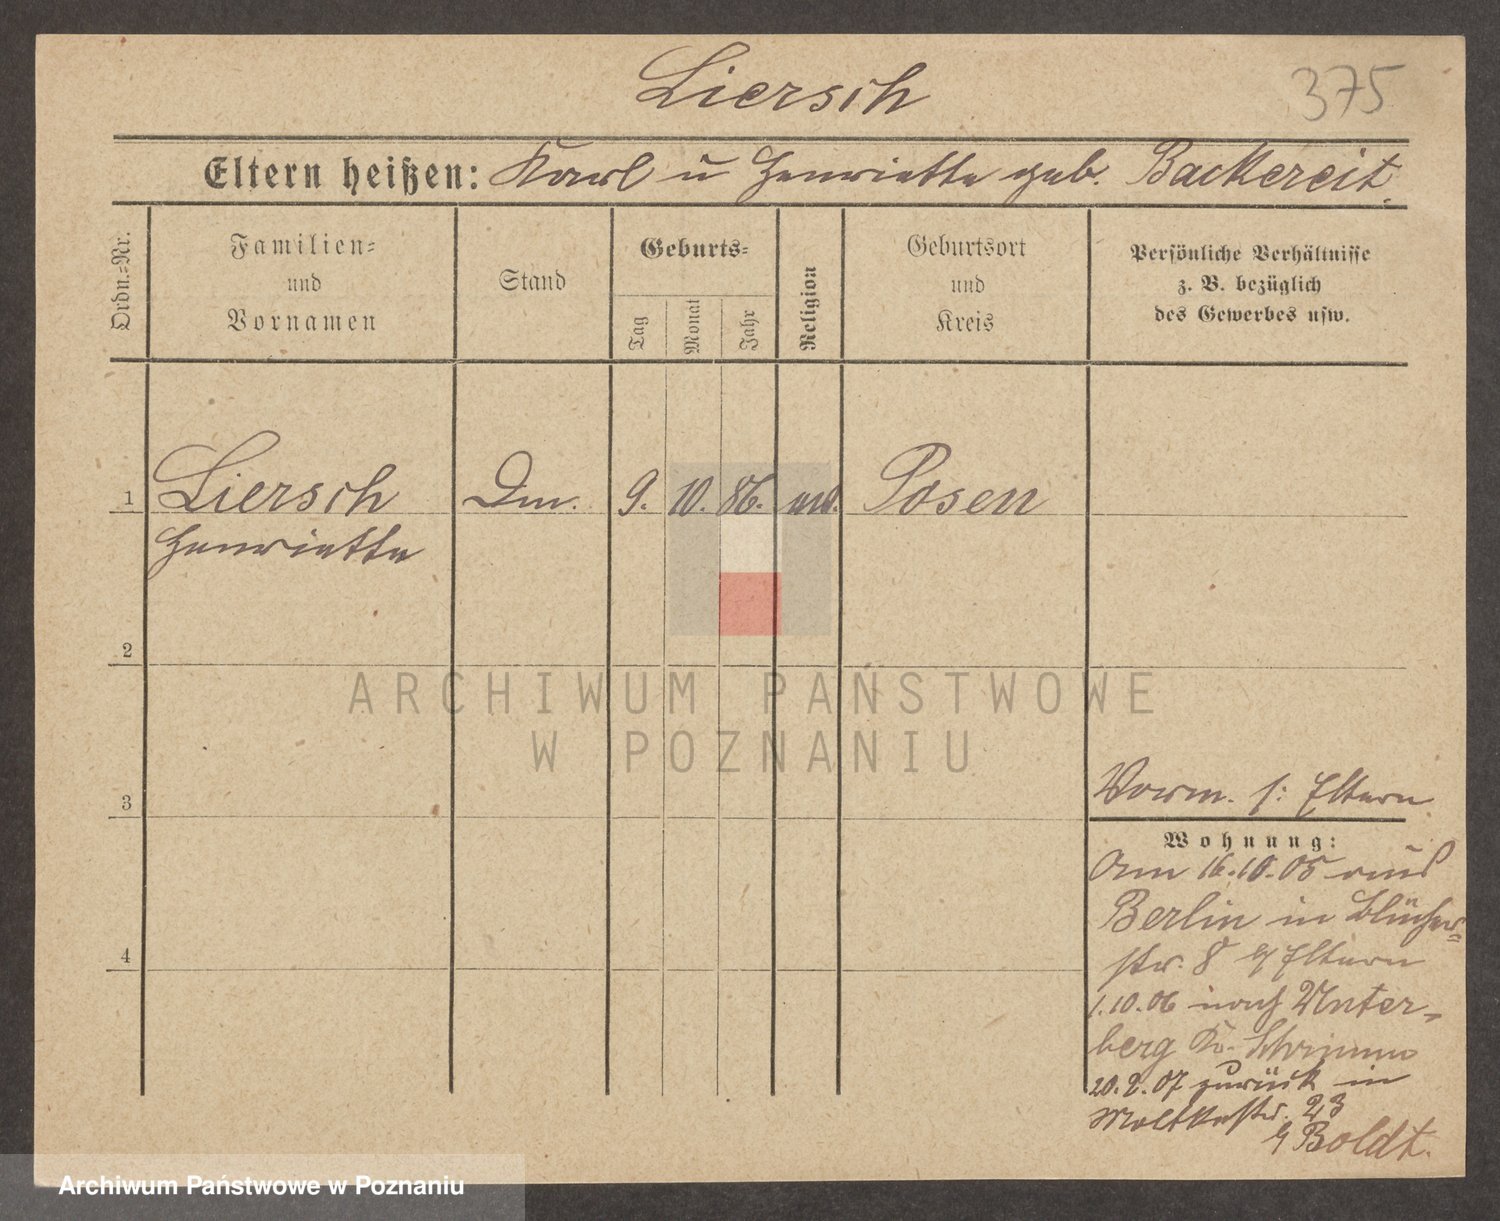 Liersch
375
Eltern heißen: Karl u Henriette geb. Backereit.
Ordn.-Nr.
Familien- und Vornamen
Stand
Geburts-
Tag
Monat
Jahr
Religion
Geburtsort und Kreis
Persönliche Verhältnisse z. B. bezüglich des Gewerbes usw.
1 Liersch 9. 10. 86. Posen
Henriette
2
3
Vorm. s: Eltern
Wohnung:
Am 16.10.05 aus
Berlin in Blücher-
str. 8 b/ Eltern
4
1.10.06 nach Unter-
berg Kr. Schrimm
20.2.07 zurück in
Moltkestr. 23
b/ Boldt.
ARCHIWUM PAŃSTWOWE
W POZNANIU
Archiwum Państwowe w Poznaniu